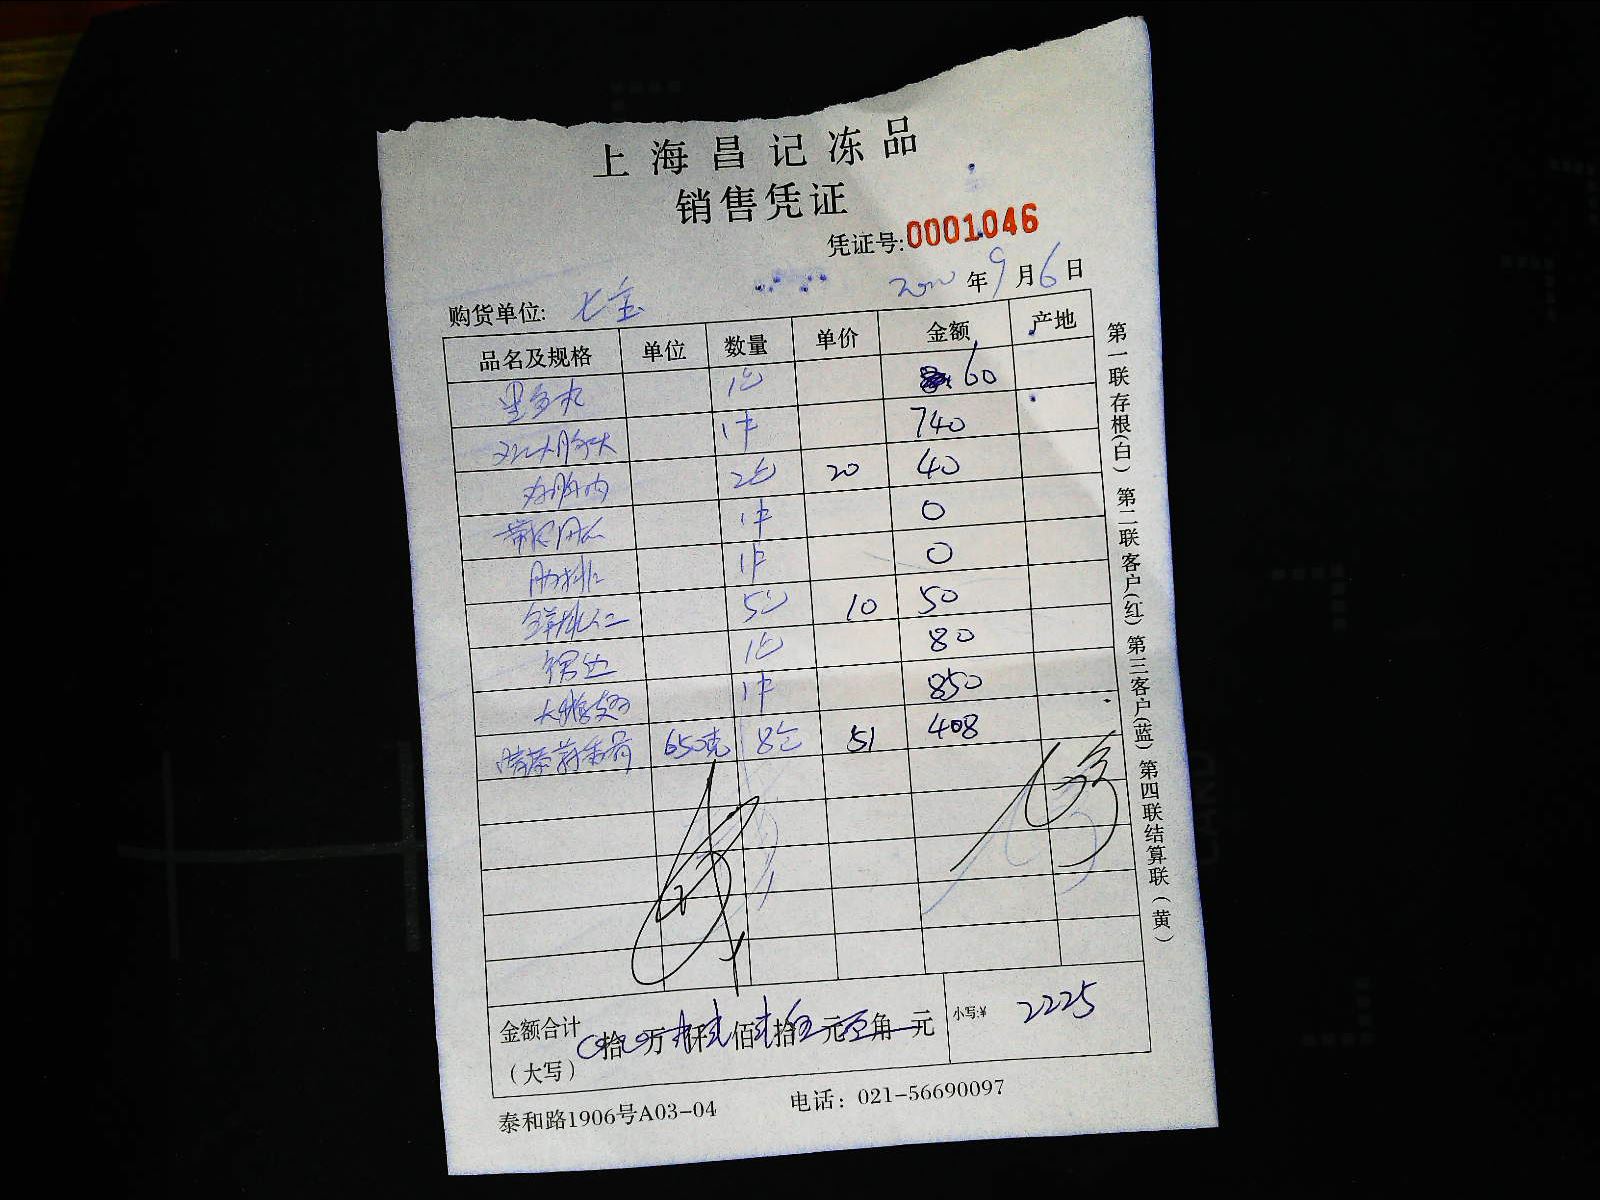 上海昌记冻品
销售凭证
凭证号:0001046
购货单位: 七宝 2020年9月6日
品名及规格 单位 数量 单价 金额 产地
墨鱼丸 1包 60
1件 740
2包 20 40
1件 0
肋排 1件 0
5包 10 50
1包 80
1件 850
650克 8包 51 408
金额合计 拾 万 仟 佰 拾 元 角 元 小写:¥ 2225
(大写)
泰和路1906号A03-04 电话: 021-56690097
第一联存根(白) 第二联客户(红) 第三客户(蓝) 第四联结算联(黄)